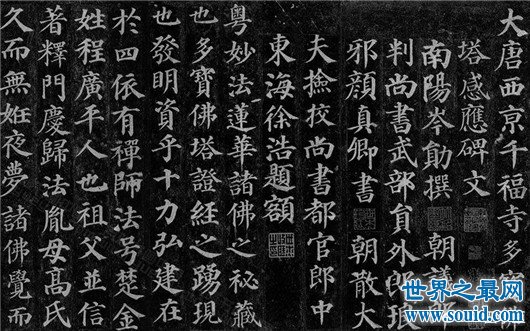 大唐西京千福寺多寶
塔感應碑文
南陽岑勛撰 朝議郎
判尚書武部員外郎琅
邪顏真卿書 朝散大
夫撿挍尚書都官郎中
東海徐浩題額
粵妙法蓮華諸佛之秘藏
也多寶佛塔證經之踴現
也發明資乎十力弘建在
於四依有禪師法号楚金
姓程廣平人也祖父並信
著釋門慶歸法胤母高氏
久而無姙夜夢諸佛覺而
世界之最网
www.souid.com